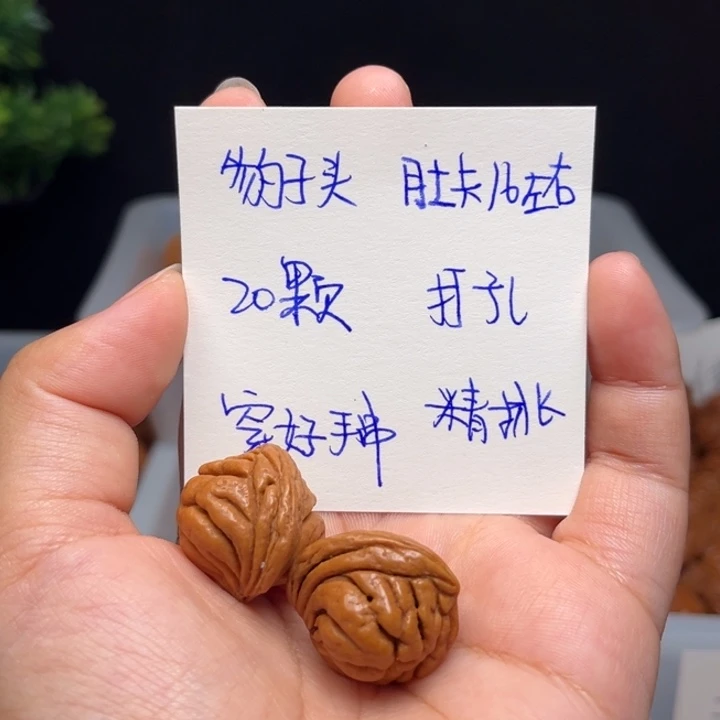 豹子头 肚卡16左右
20颗 打孔
穿好手串 精挑